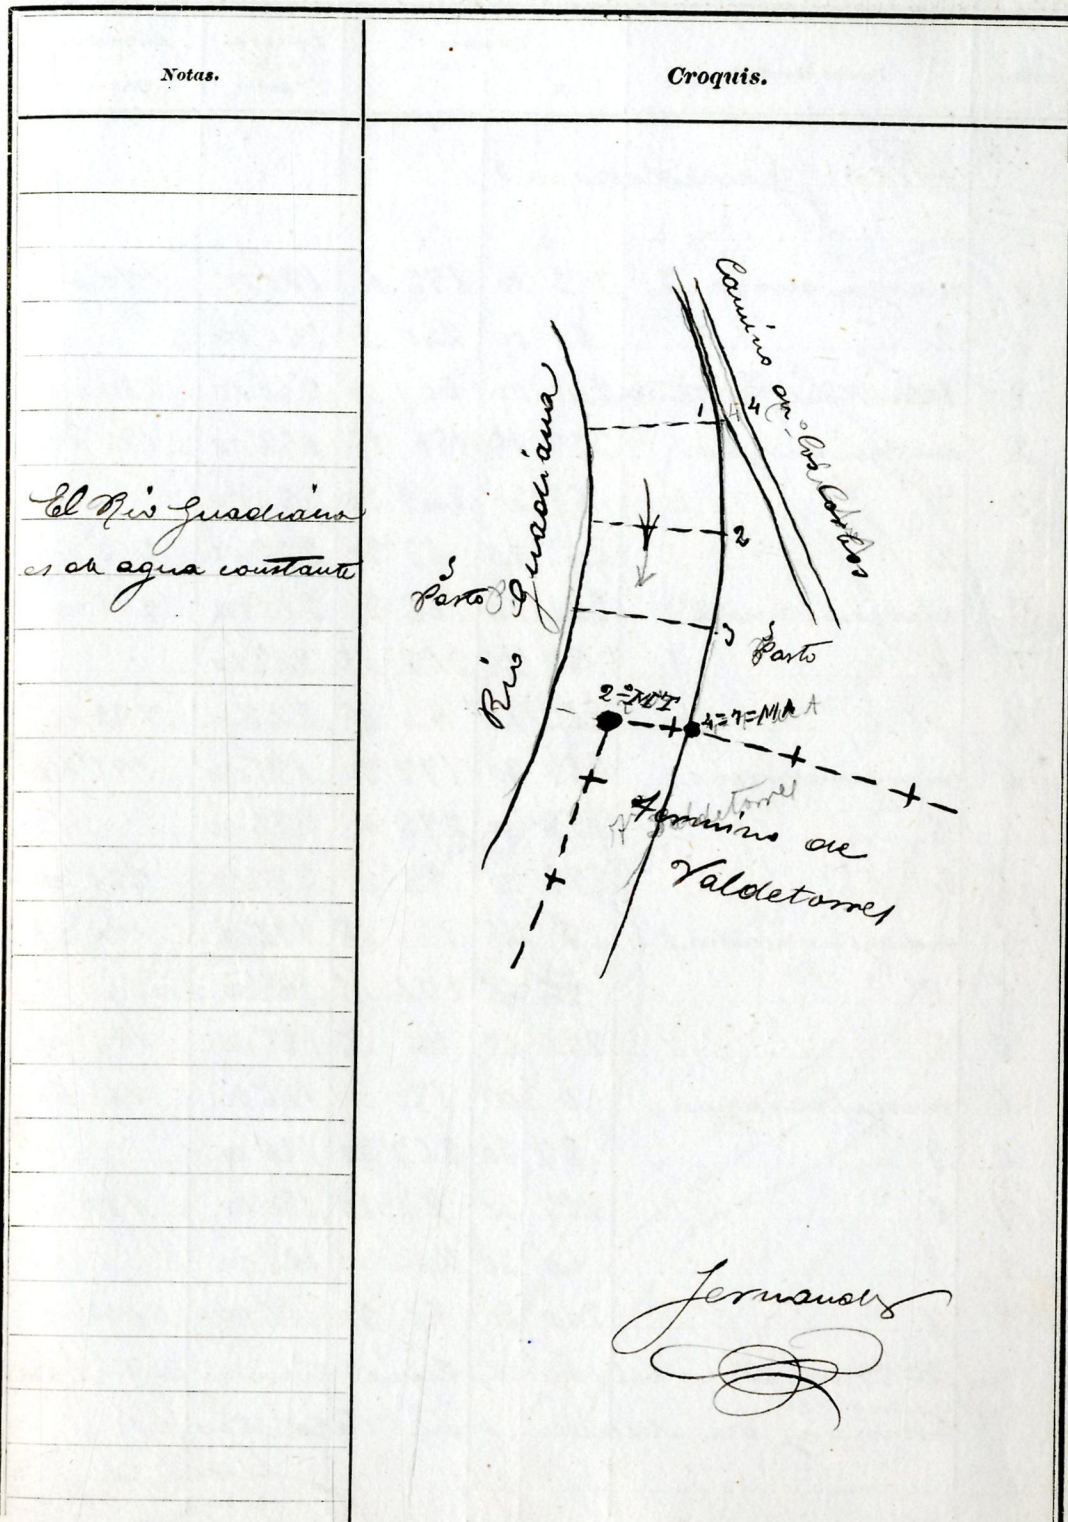 Notas.
Croquis.
El Rio Guadiana
es de agua constante
Camino de los
Rio Guadiana
1
4
4
2
3
Pasto
Pasto
2=MT
4=7=MA
A
Valdetorres
Termino de
Valdetorres
Fernandez